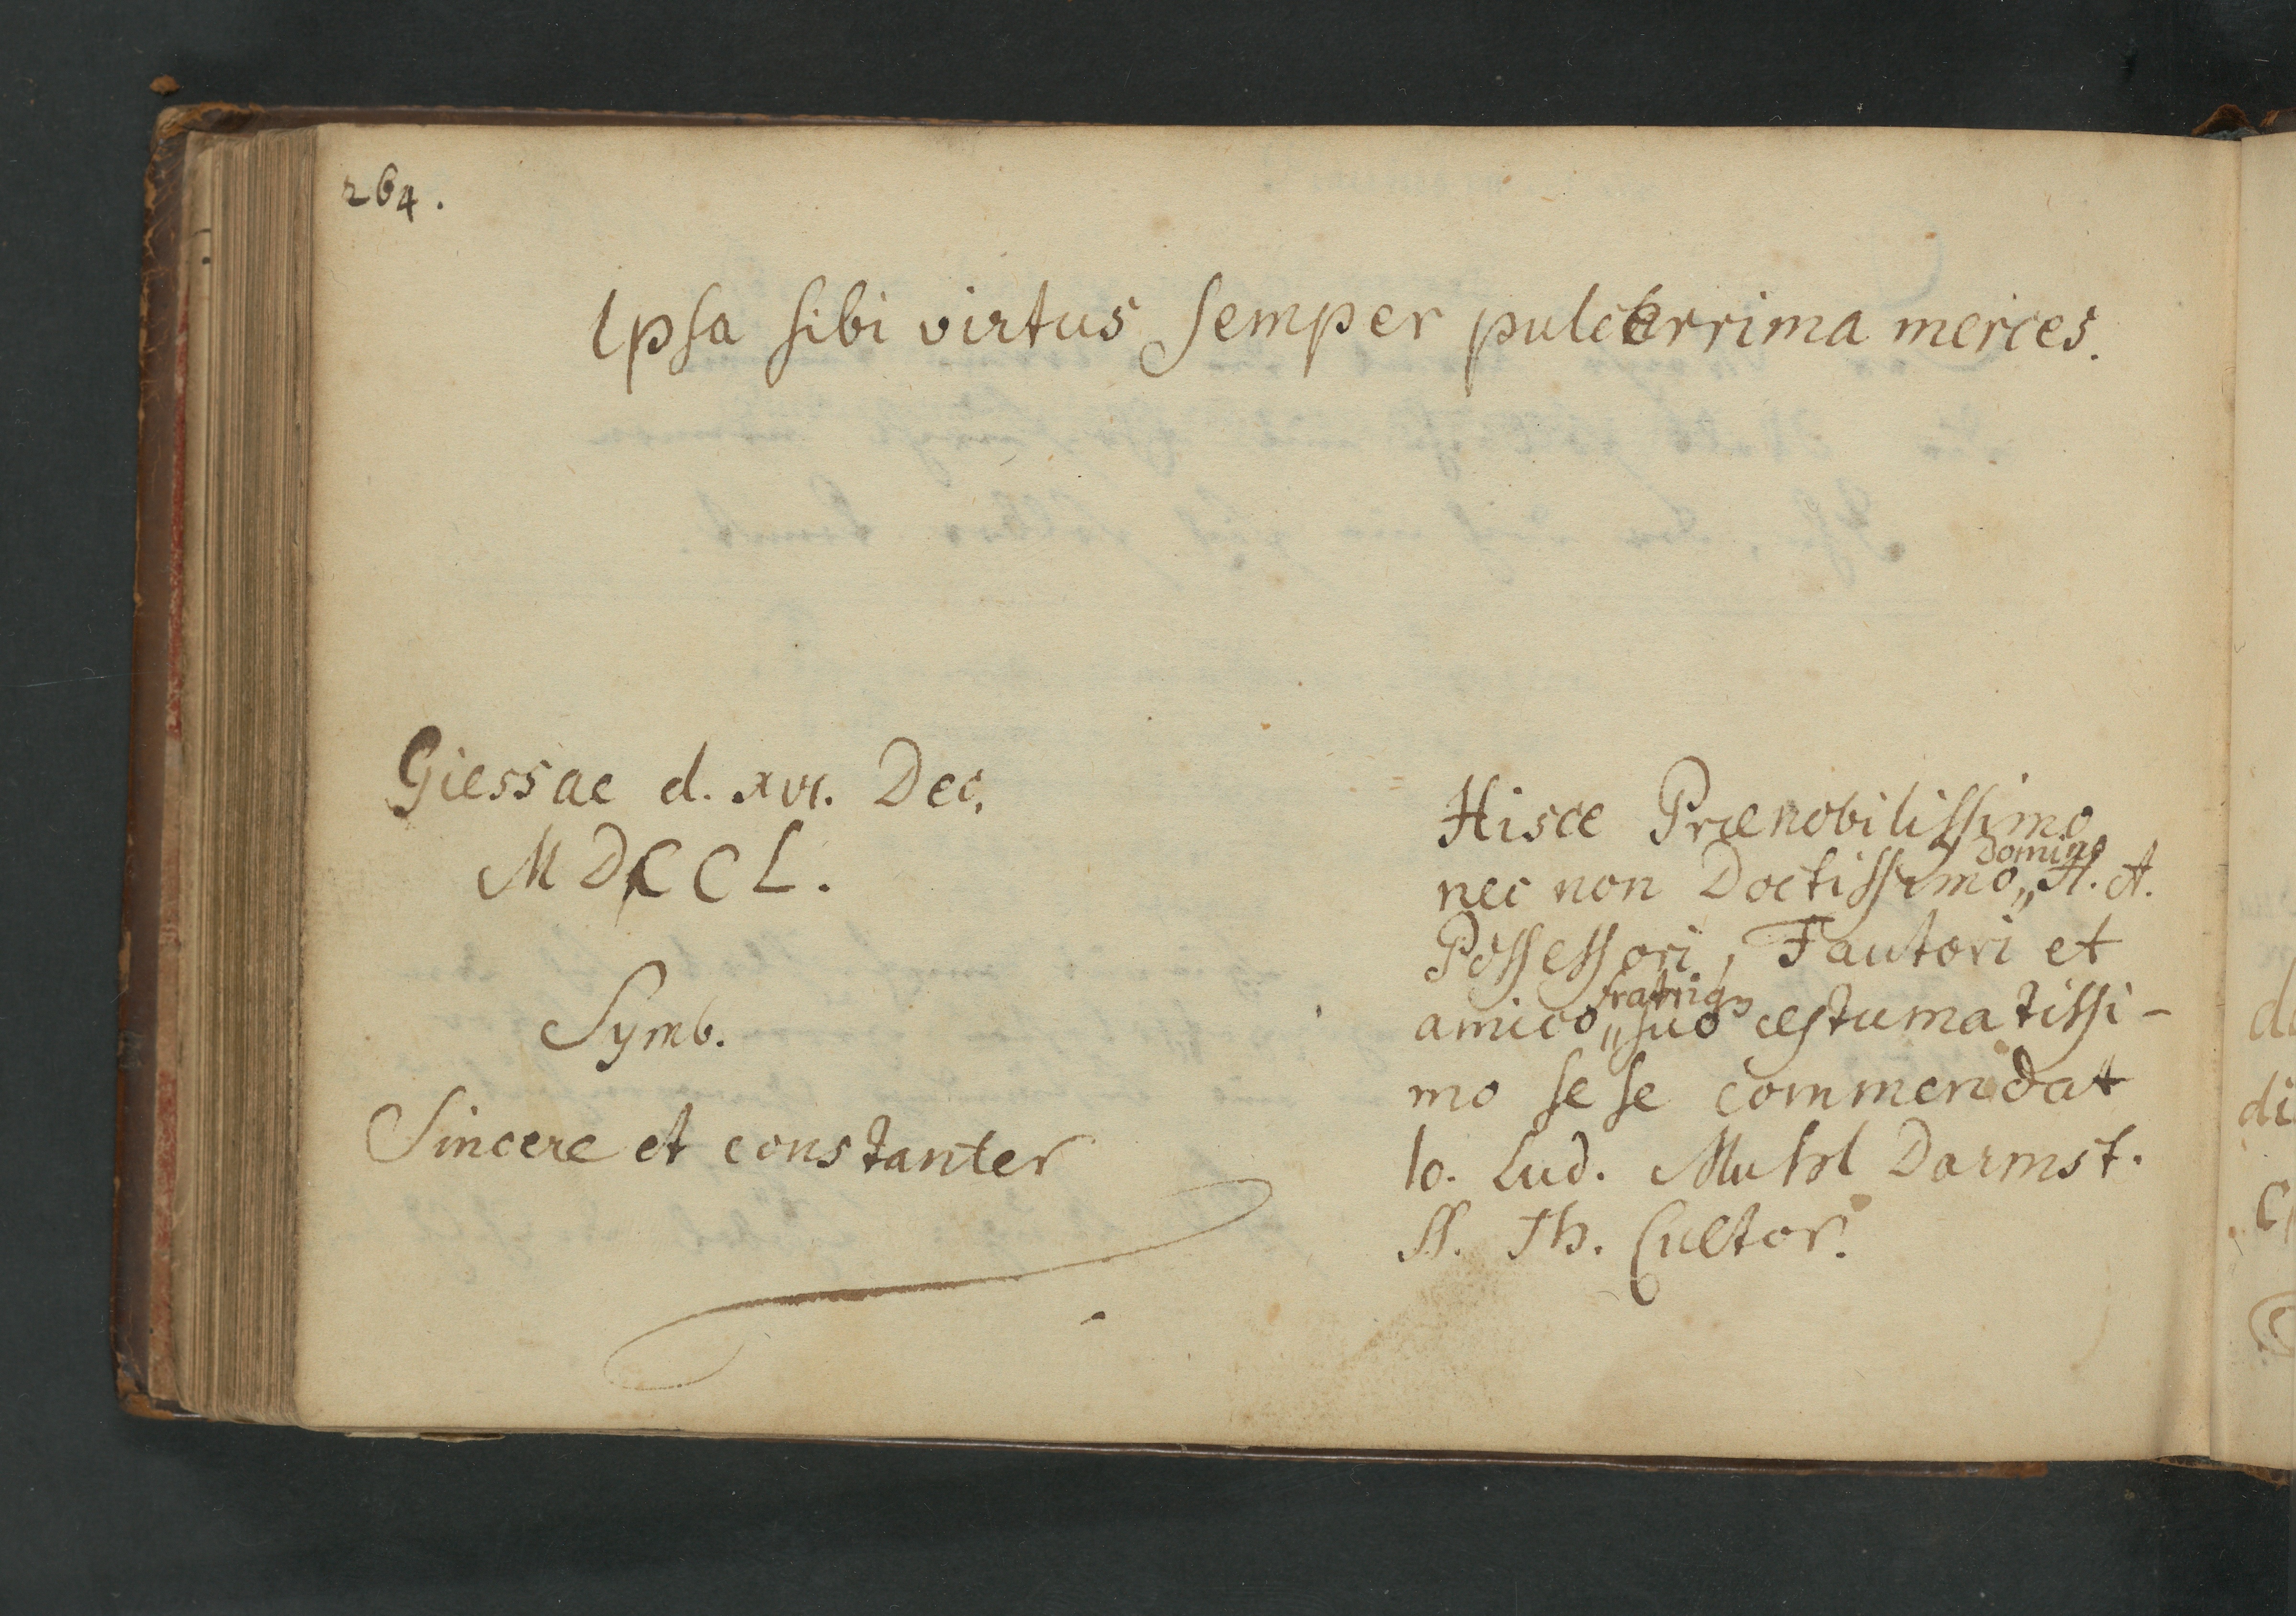 264.
Ipsa sibi virtus semper pulcerrima merces.
Giessae d. XVI. Dec.
MDCCL.
Symb.
Sincere et constanter
Hisce Prænobilissimo
nec non Doctissimo,, domino H. A.
Possessori, Fautori et
amico,, fratriq3 suo æstumatissi-
mo sese commendat
Io. Lud. Muhl Darmst.
SS. Th. Cultor.